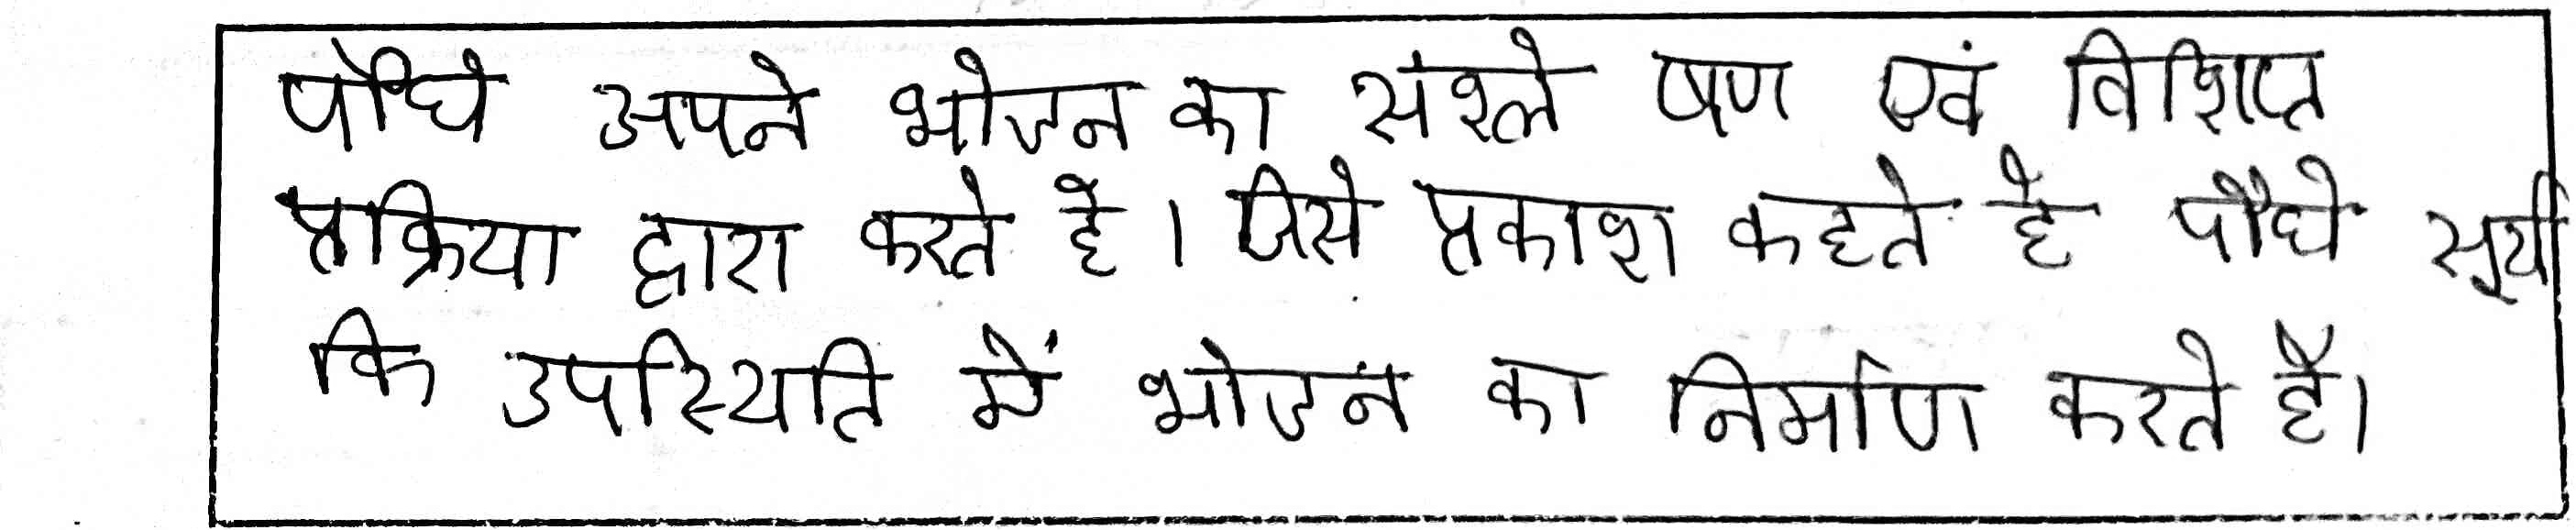 पौधे अपने भोजन का संश्ले षण एवं विशिप्त
प्रक्रिया द्वारा करते है। जिसे प्रकाश कहते है पौधे सूर्य
कि उपस्थिति में भोजन का निर्माण करते है।